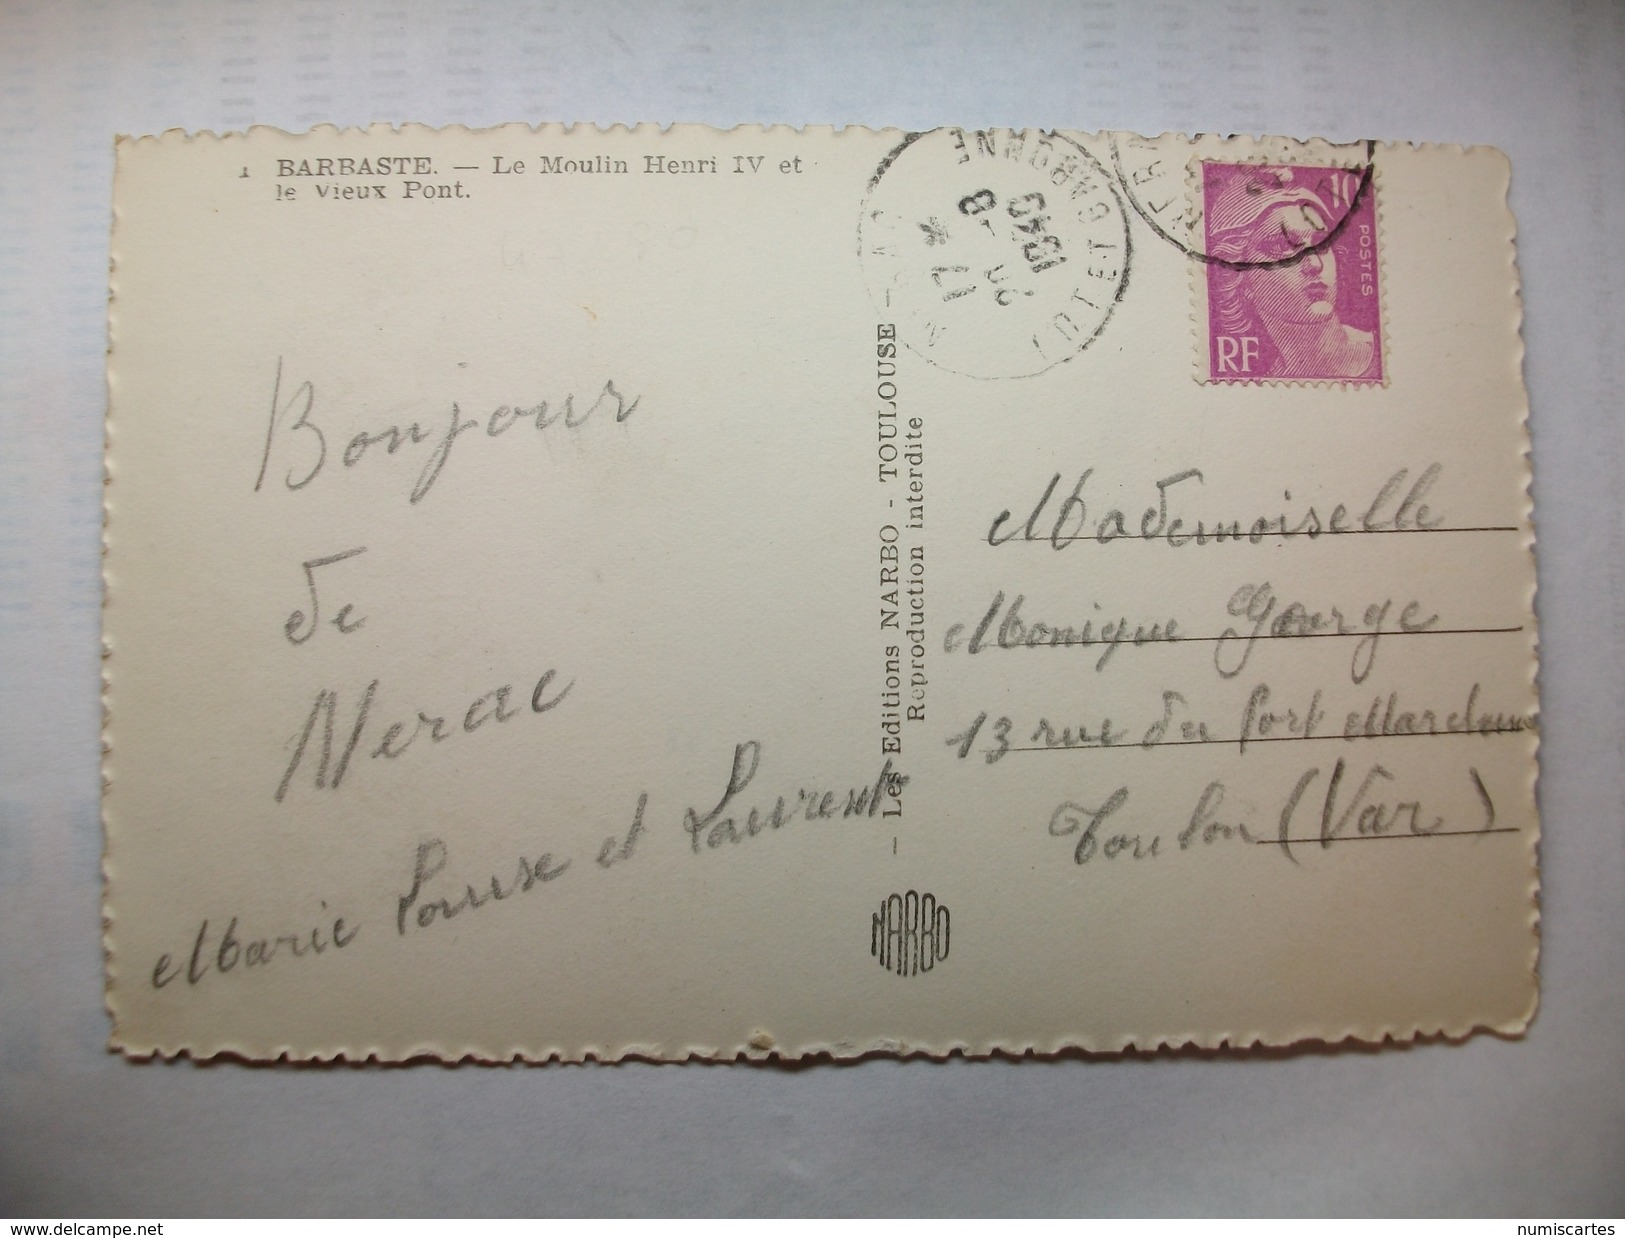 1 BARBASTE. — Le Moulin Henri IV et
le Vieux Pont.
Bonjour
de
Nerac
Marie Louise et Laurent
— Les Editions NARBO - TOULOUSE —
Reproduction interdite
NARBO
LOT ET GARONNE
17 *
20 -8
1949
10
POSTES
RF
Mademoiselle
Monique George
13 rue du Port Marchand
Toulon (Var)
www.delcampe.net
numiscartes